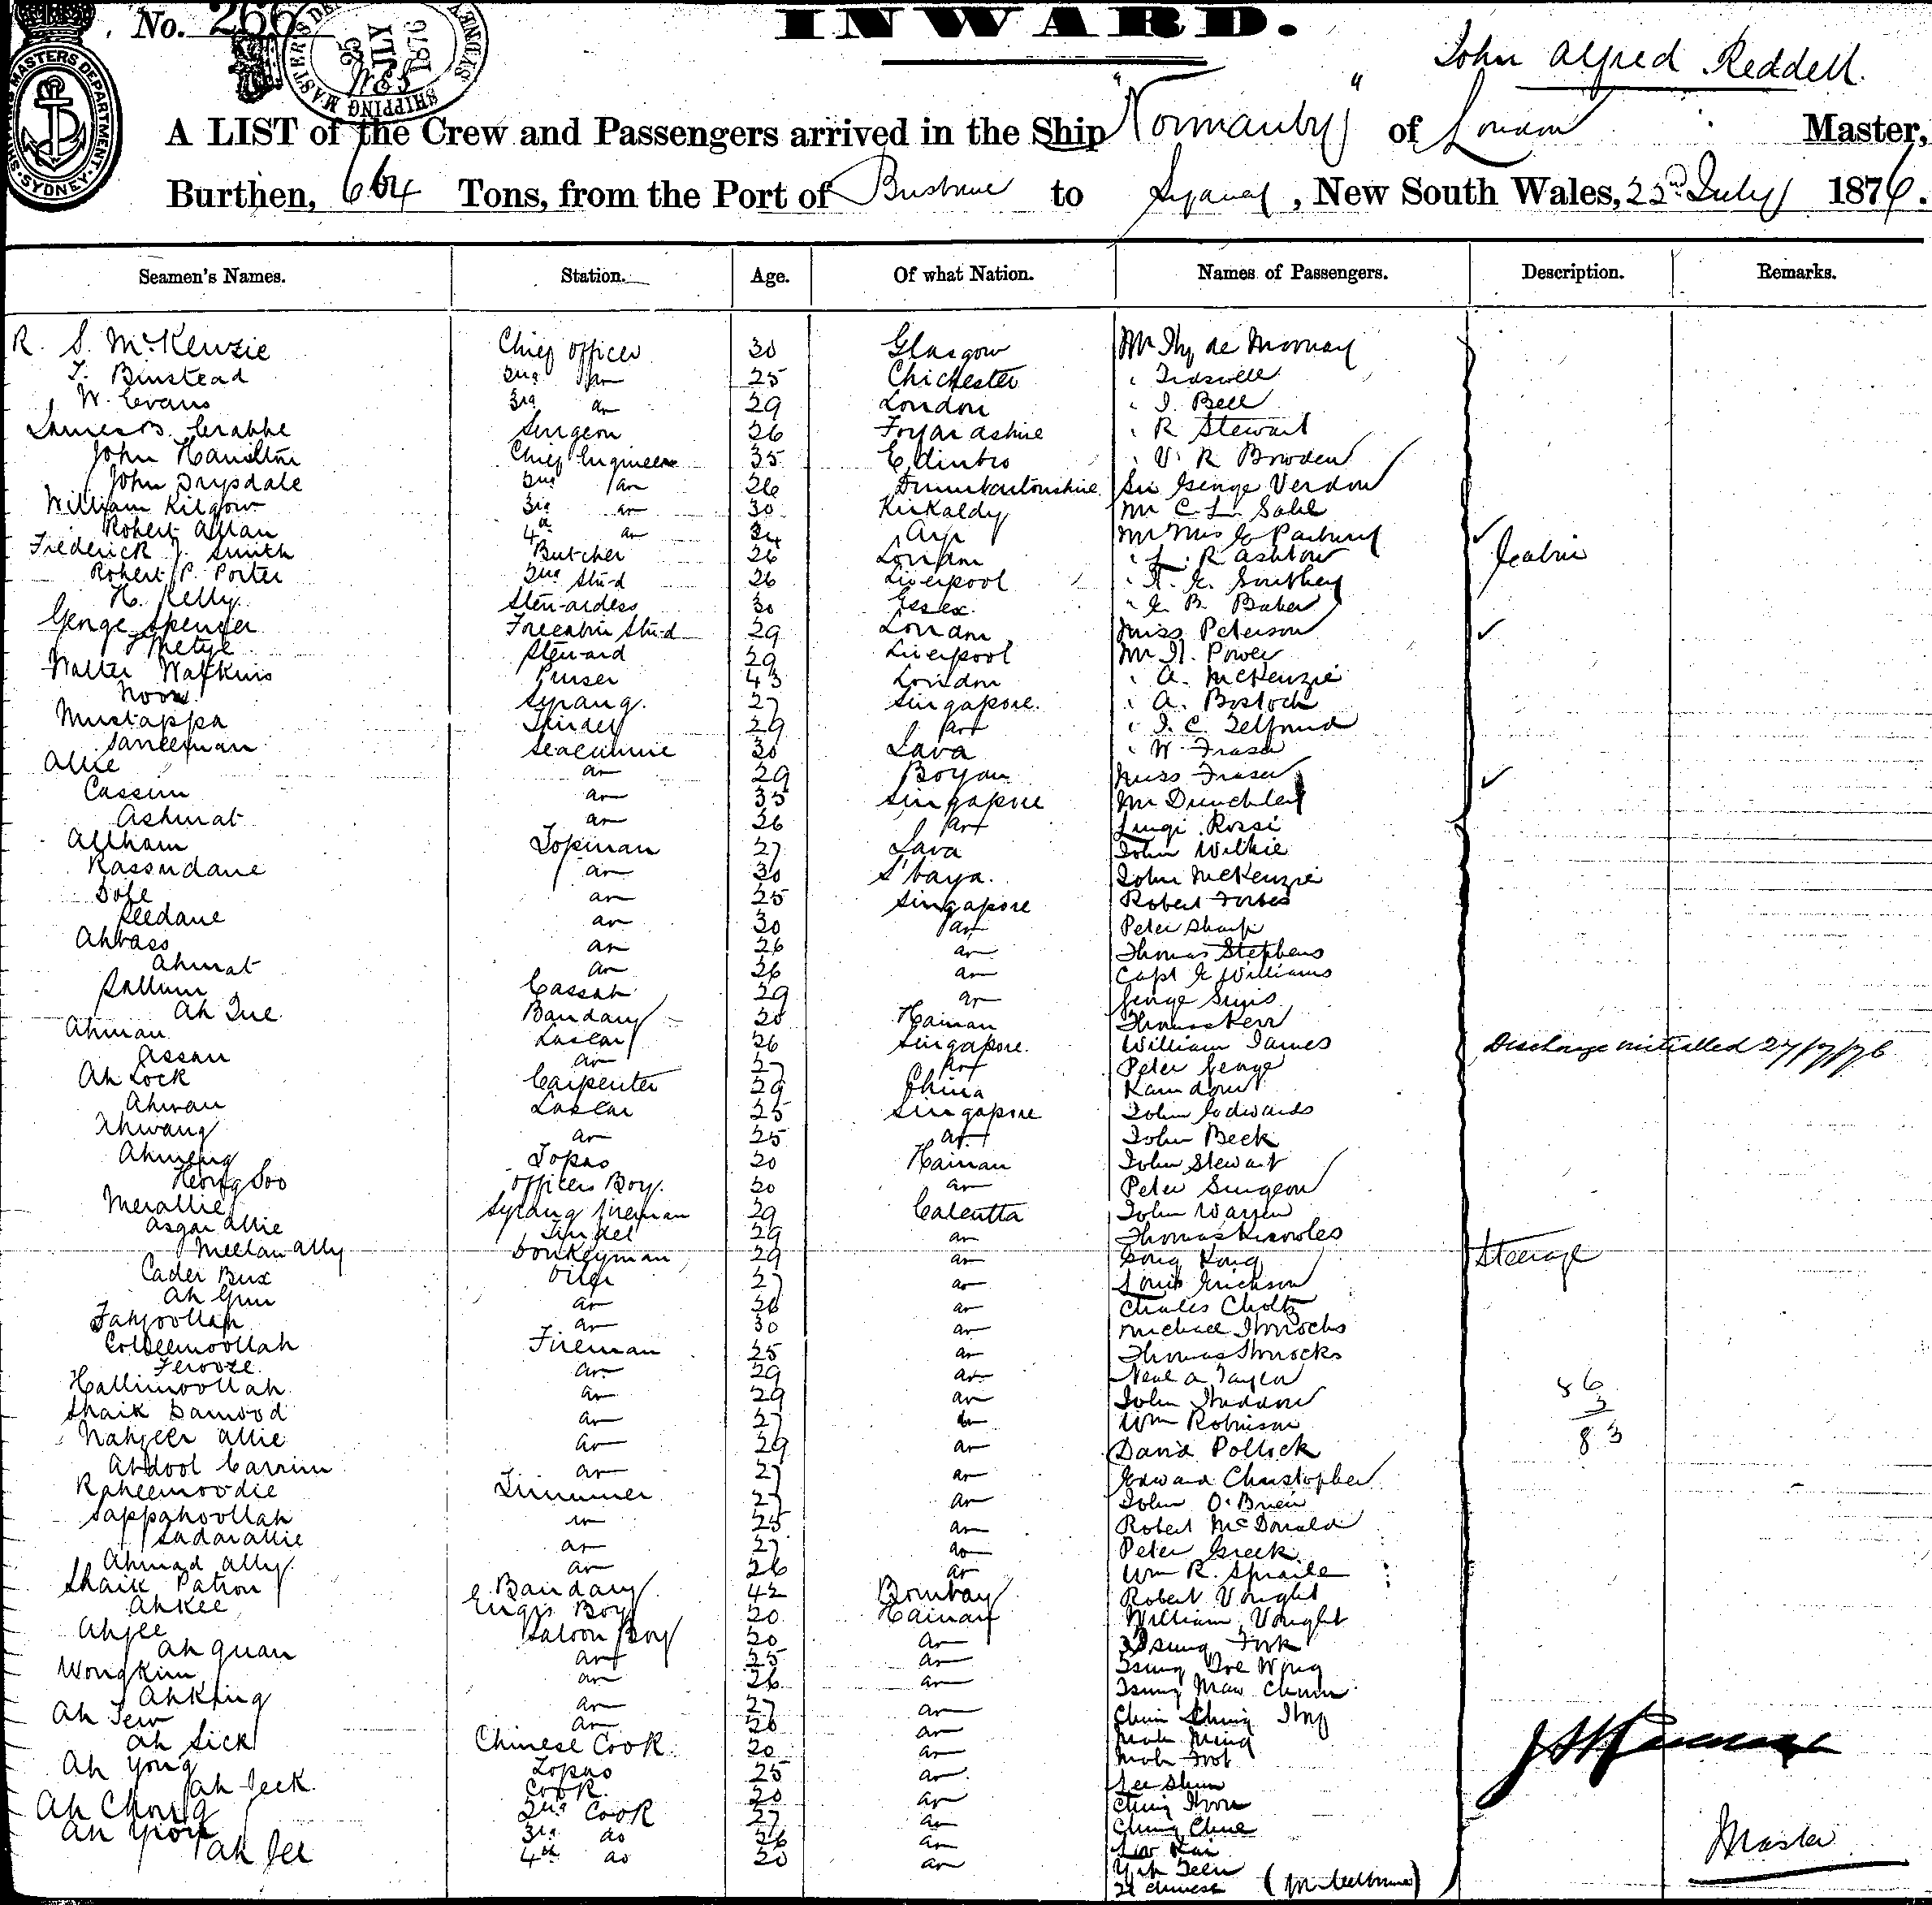 No. 266
SHIPPING MASTER'S DEPARTMENT SYDNEY
25 JULY 1876
SHIPPING MASTERS DEPARTMENT · SYDNEY ·
INWARD.
John Alfred Reddell.
A LIST of the Crew and Passengers arrived in the Ship "Normanby" of London Master,
Burthen, 664 Tons, from the Port of Brisbane to Sydney, New South Wales, 22nd July 1876.
Seamen's Names. Station. Age. Of what Nation. Names of Passengers. Description. Remarks.
R. S. McKenzie Chief Officer 30 Glasgow Mr de Mornay
T. Binstead 2nd do 25 Chichester " Tidswell
W. Evans 3rd do 29 London " J. Bell
James B. Crabbe Surgeon 26 Forfarshire " R Stewart
John Hamilton Chief Engineer 35 Edinbro " V. R Bowden
John Drysdale 2nd do 26 Dumbartonshire Sir George Verdon
William Kilgour 3rd do 30 Kirkaldy Mr C. L. Sahl
Robert Allan 4th do 24 Ayr Mr Mrs Parbury
Frederick J. Smith Butcher 26 London " L. R Ashton Cabin
Robert P. Porter 2nd Stud 26 Liverpool " Southey
H. Kelly Stewardess 30 Essex " E. B. Baker
George Spencer Forecabin Stud 29 London Miss Peterson
J Metye Steward 29 Liverpool Mr N. Power
Walter Watkins Purser 43 London " A. McKenzie
Noor Syrang. 27 Singapore. " A. Bostock
Mustappa Tindel 29 do " J. C. Telford
Saneeman Seacunnie 30 Java " W. Fraser
Allie do 29 Boyan Miss Fraser
Cassim do 35 Singapore Mr Dunckley
Ashmat do 26 do Luigi Rossi
Allham Topman 27 Java John Wilkie
Kassudane do 30 S'baya. John McKenzie
Dole do 25 Singapore Robert Forbes
Seedane do 30 do Peter Sharp
Ahbass do 26 do Thomas Stephens
Ahmat do 26 do Capt E Williams
Sallum Cassab 29 do George Simis
Ah Que Bandary 20 Hainan Thomas Kerr
Ahman Lascar 26 Singapore. William James Discharge initialled 27/7/76
Assan do 27 do Peter George
Ah Lock Carpenter 29 China Ramdour
Ahwan Lascar 25 Singapore John Edwards
Ahwang do 25 do John Beck
Ahmeng Topas 20 Hainan John Stewart
Heong Soo Officers Boy. 20 do Peter Surgeon
Merallie Syrang fireman 29 Calcutta John Warren
Asgar Allie Tindel 29 do Thomas Knowles
Meelan Ally Donkeyman 29 do Gong Kong Steerage
Cader Bux Oiler 27 do Louis Erickson
Ah Gun do 26 do Charles Choltz
Fahjoollah do 30 do Michael Horrocks
Coldeemoollah Fireman 25 do Thomas Horrocks
Ferooze do 29 do Neal A Taylor
Hallimoollah do 29 do John Huddon 86
Shaik Damood do 27 do Wm Robinson 3
Nahjeer Allie do 29 do David Pollock 83
Abdool Carrim do 27 do Edward Christopher
Raheemoodie Trimmer 27 do John O'Brien
Sappahoollah do 25 do Robert McDonald
Sadarallie do 27 do Peter Greek
Ahmad Ally do 26 do Wm R. Spraile
Shaik Patron Bandary 42 Bombay Robert Vought
Ah Kee Engrs Boy 20 Hainan William Vought
Ahjee Saloon Boy 20 do Tsung Fook
Ah Quan do 25 do Tsung Doe Wing
Wongkim do 26 do Tsung Maw Chum
Ahking do 27 do Chim Ching
Ah Sew do 26 do Mah Ming
Ah Sick Chinese Cook 20 do Mah Foot
Ah Yong Topas 25 do Lee Shun
Ah Jeck Cook 20 do Ching Hoon
Ah Chong 2nd Cook 27 do Chung Chue
Ah Yiow 3rd do 26 do Low Kai
Ah Jee 4th do 20 do Yah Teen
21 Chinese (Melbourne)
Master